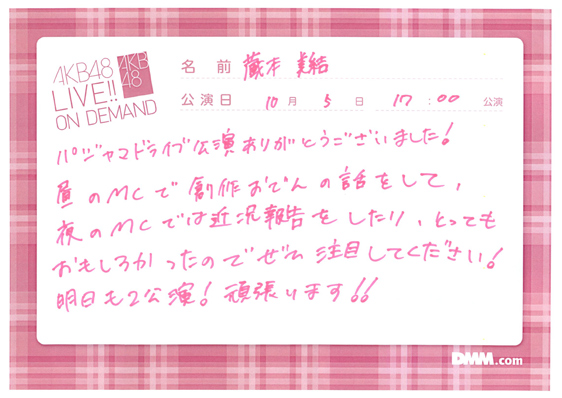 AKB48
LIVE!!
ON DEMAND
AKB
48
名 前 蔵本 美結
公演日 10月 5日 17:00 公演
パジャマドライブ公演ありがとうございました!
昼のMCで創作おでんの話をして、
夜のMCでは近況報告をしたり、とっても
おもしろかったのでぜひ注目してください!
明日も2公演!頑張ります!!
DMM.com